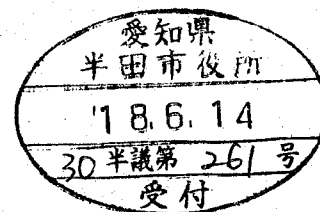 愛知県
半田市役所
'18.6.14
30半議第 261 号
受付